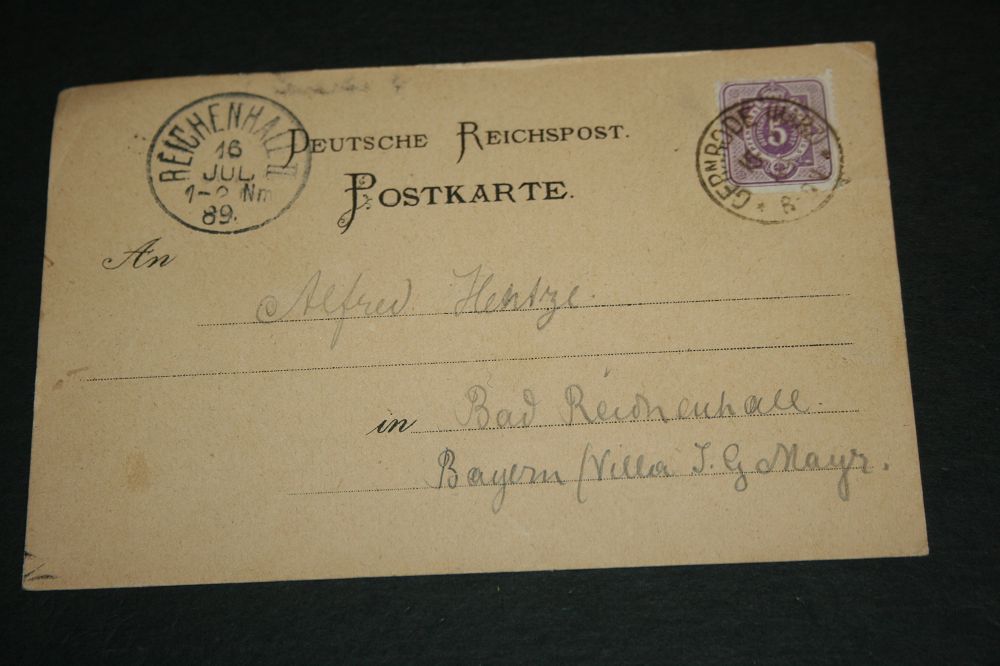 REICHENHALL II
16
JUL
1-2 Nm
89.
DEUTSCHE REICHSPOST.
POSTKARTE.
GERNRODE (HARZ)
5
An
Alfred Hentze.
in Bad Reichenhall.
Bayern (Villa J. G. Mayr.